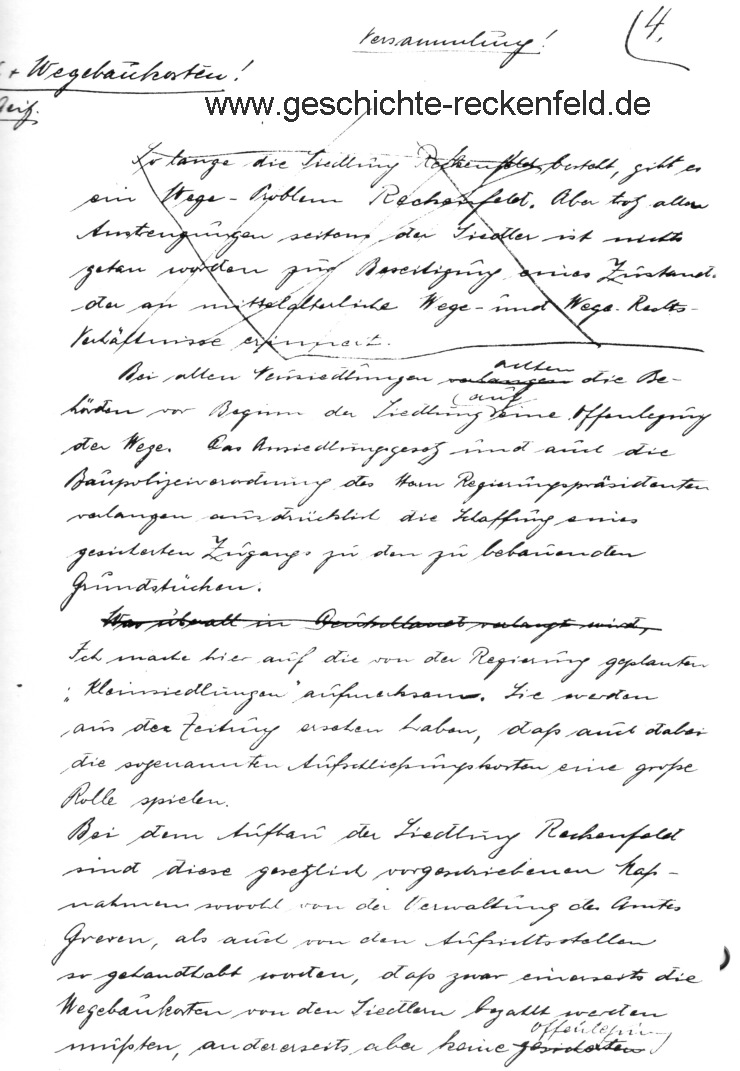 Versammlung!
4.
+ Wegebaukosten!
www.geschichte-reckenfeld.de
So lange die Siedlung Reckenfeld besteht, gibt es
ein Wege-Problem Reckenfeld. Aber trotz allen
Anstrengungen seitens der Siedler ist nichts
getan worden zur Beseitigung eines Zustand.
der an mittelalterliche Wege- und Wege-Rechts-
Verhältnisse erinnert.
Bei allen Neusiedlungen verlangen achten die Be-
hörden vor Beginn der Siedlung auf eine Offenlegung
der Wege. Das Ansiedlungsgesetz und auch die
Baupolizeiverordnung des Herrn Regierungspräsidenten
verlangen ausdrücklich die Schaffung eines
gesicherten Zugangs zu den zu bebauenden
Grundstücken.
Was überall in Deutschland verlangt wird,
Ich mache hier auf die von der Regierung geplanten
„Kleinsiedlungen" aufmerksam. Sie werden
aus der Zeitung ersehen haben, daß auch dabei
die sogenannten Aufschließungskosten eine große
Rolle spielen.
Bei dem Aufbau der Siedlung Reckenfeld
sind diese gesetzlich vorgeschriebenen Maß-
nahmen sowohl von der Verwaltung des Amtes
Greven, als auch von den Aufsichtsstellen
so gehandhabt worden, daß zwar einerseits die
Wegebaukosten von den Siedlern bezahlt werden
mußten, andererseits aber keine gesicherten Offenlegung